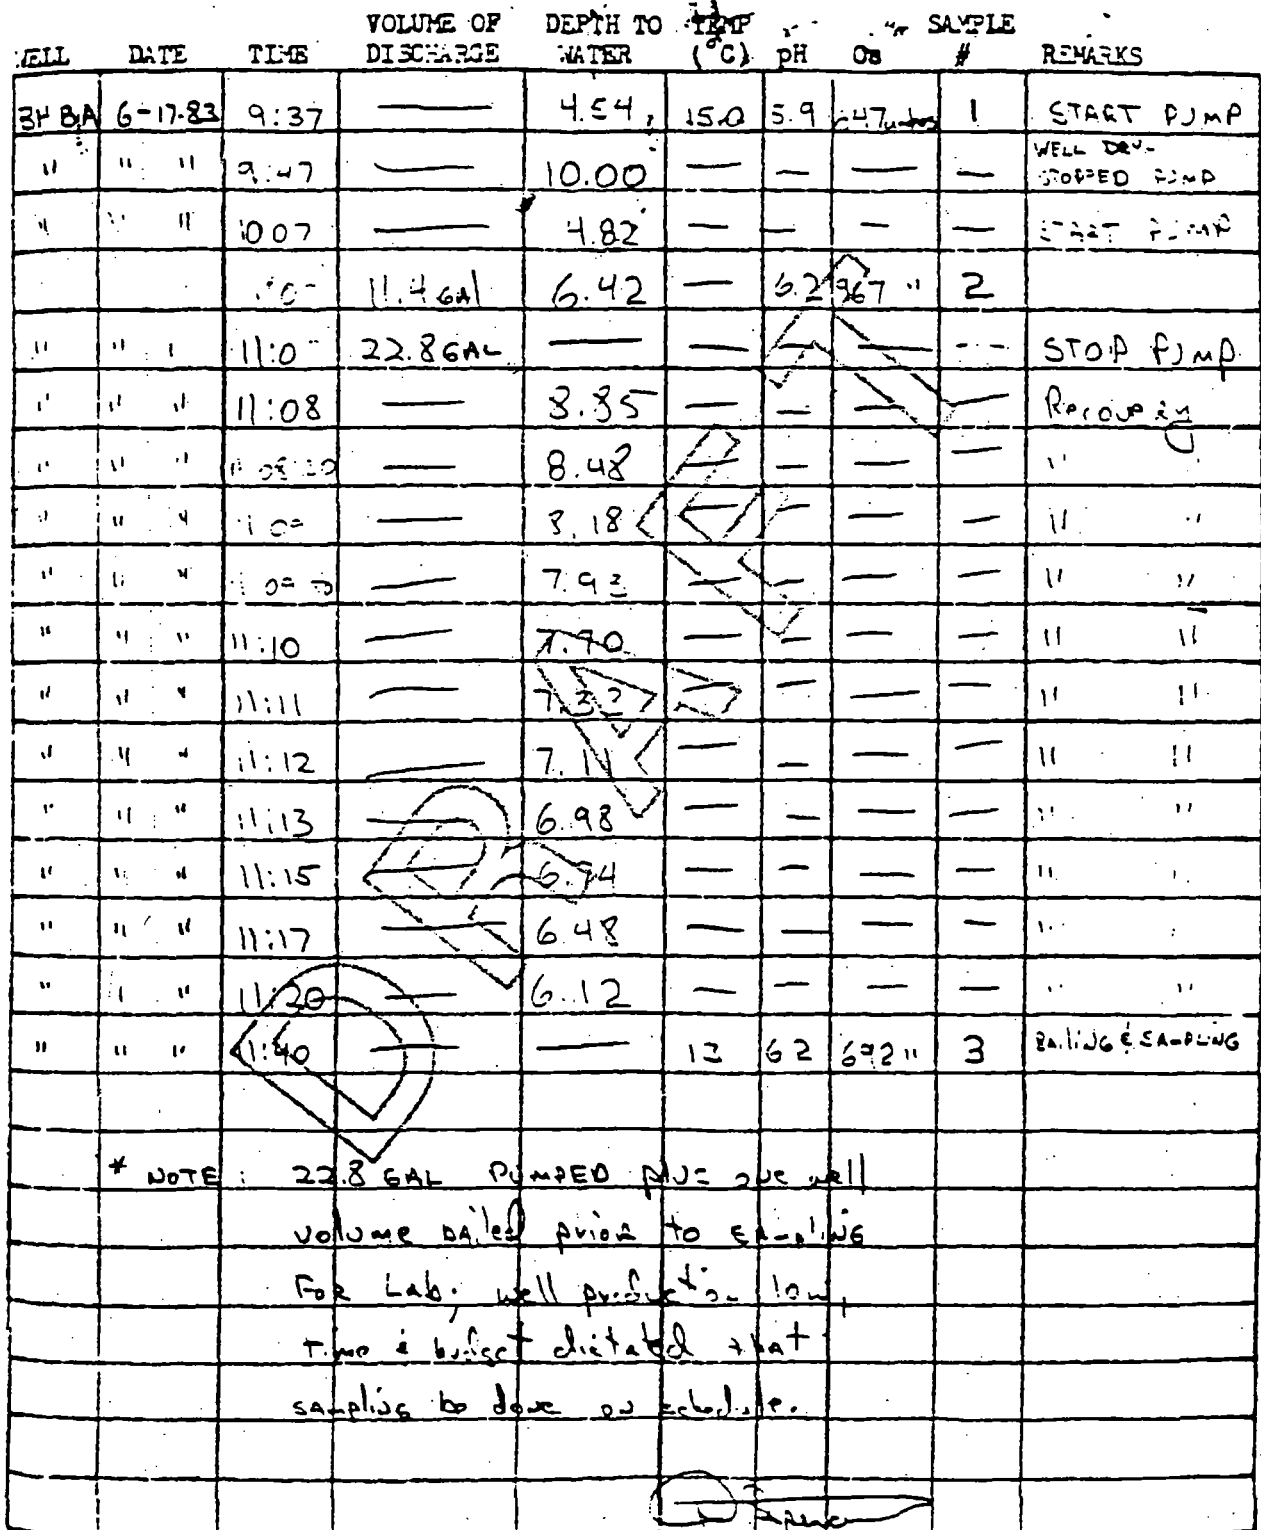 VOLUME OF DEPTH TO TEMP SAMPLE
WELL DATE TIME DISCHARGE WATER (°C) pH # REMARKS
6-17-83 9:37 — 4.54 15.0 5.9 1 START PUMP
" " " 9:47 — 10.00 — — — — WELL DRY- STOPPED PUMP
" " " 1007 — 4.82 — — — — START PUMP
11.4 GAl 6.42 — 6.2 967 " 2
" " " 22.8 GAL — — — — — STOP PUMP
" " " 11:08 — — — — — Recovery
" " " — 8.48 — — — — " "
" " " — 8.18 — — — — " "
" " " — — — — — " "
" " " 11:10 — 7.70 — — — — " "
" " " 11:11 — 7.32 — — — — " "
" " " 11:12 — 7.11 — — — — " "
" " " 11:13 — 6.98 — — — — " "
" " " 11:15 — — — — — "
" " " 11:17 — 6.48 — — — — "
" " " 11:20 — 6.12 — — — — " "
" " " 11:40 — — 6.2 692 " 3 BAiLiNG & SAMPLiNG
* NOTE: 22.8 GAL PUMPED plus one well
volume bailed prior to SAMPLiNG
For Lab; well production low,
Time & budget dictated that
sampling be done on schedule.
DRAFT